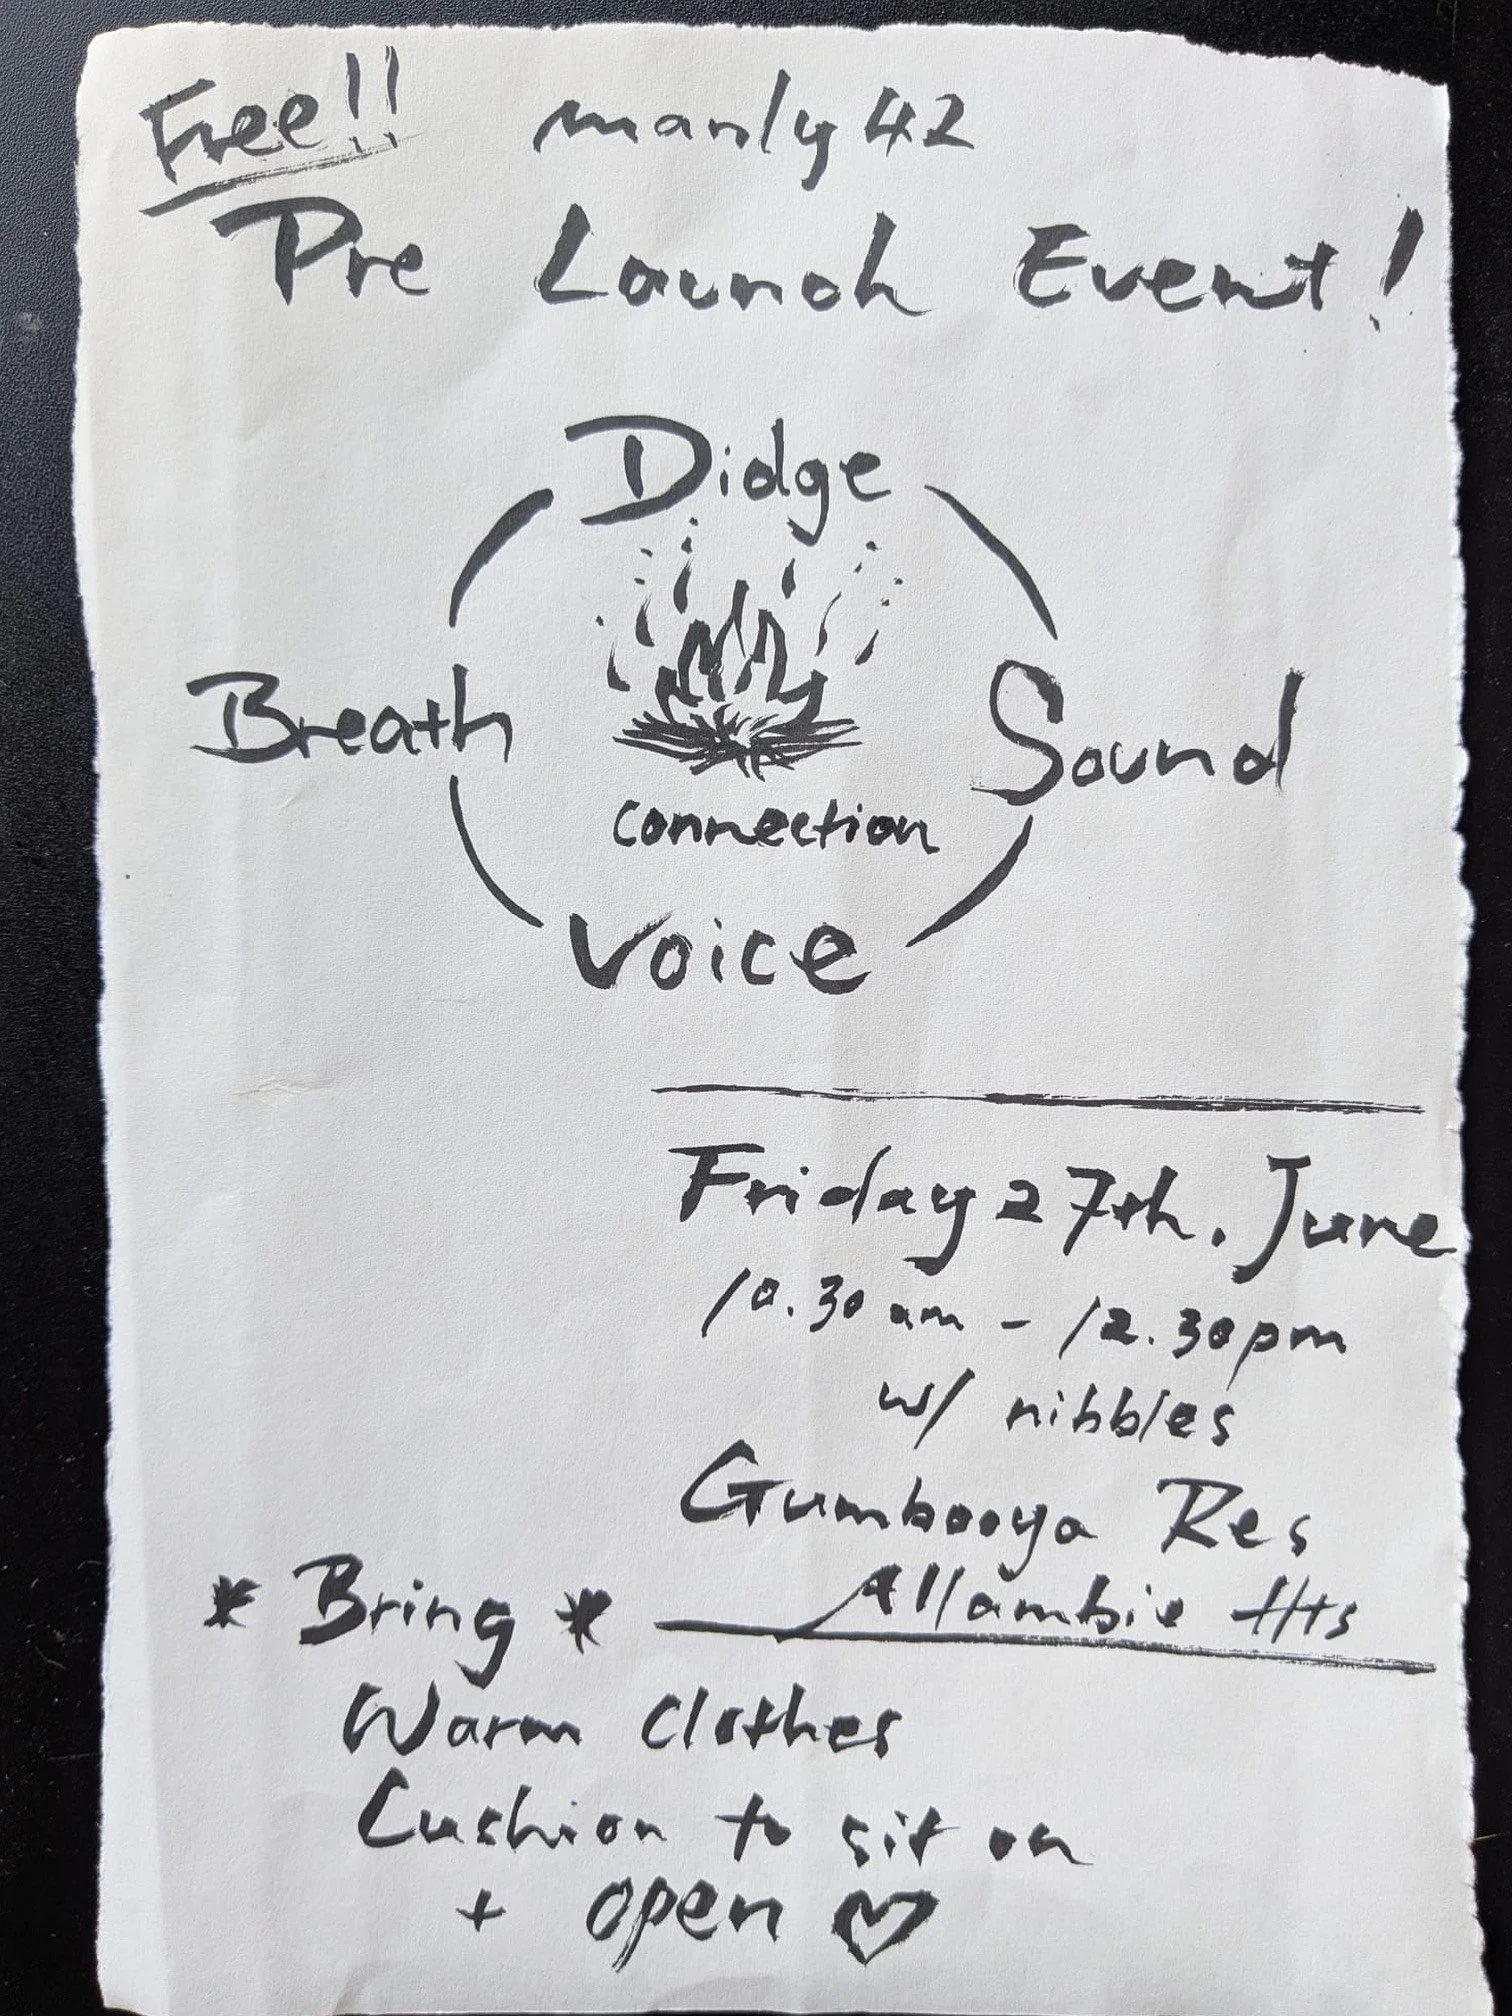 Free!! manly42
Pre Launch Event!
Didge
Breath
Sound
connection
Voice
Friday 27th. June
10.30am - 12.30pm
w/ nibbles
Gumbooya Res
Allambie Hts
* Bring *
Warm Clothes
Cushion to sit on
+ open ♡